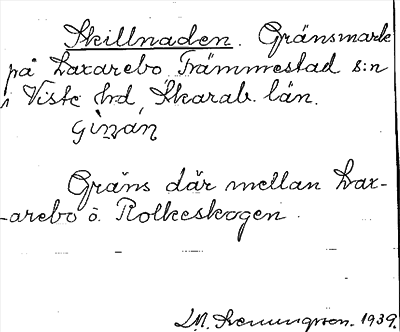 Skillnaden. Gränsmark
på Laxarebo Främmestad s:n
i Viste hrd, Skarab. län.
Gränş där mellan Lax-
-arebo o. Rolkeskogen.
1939.